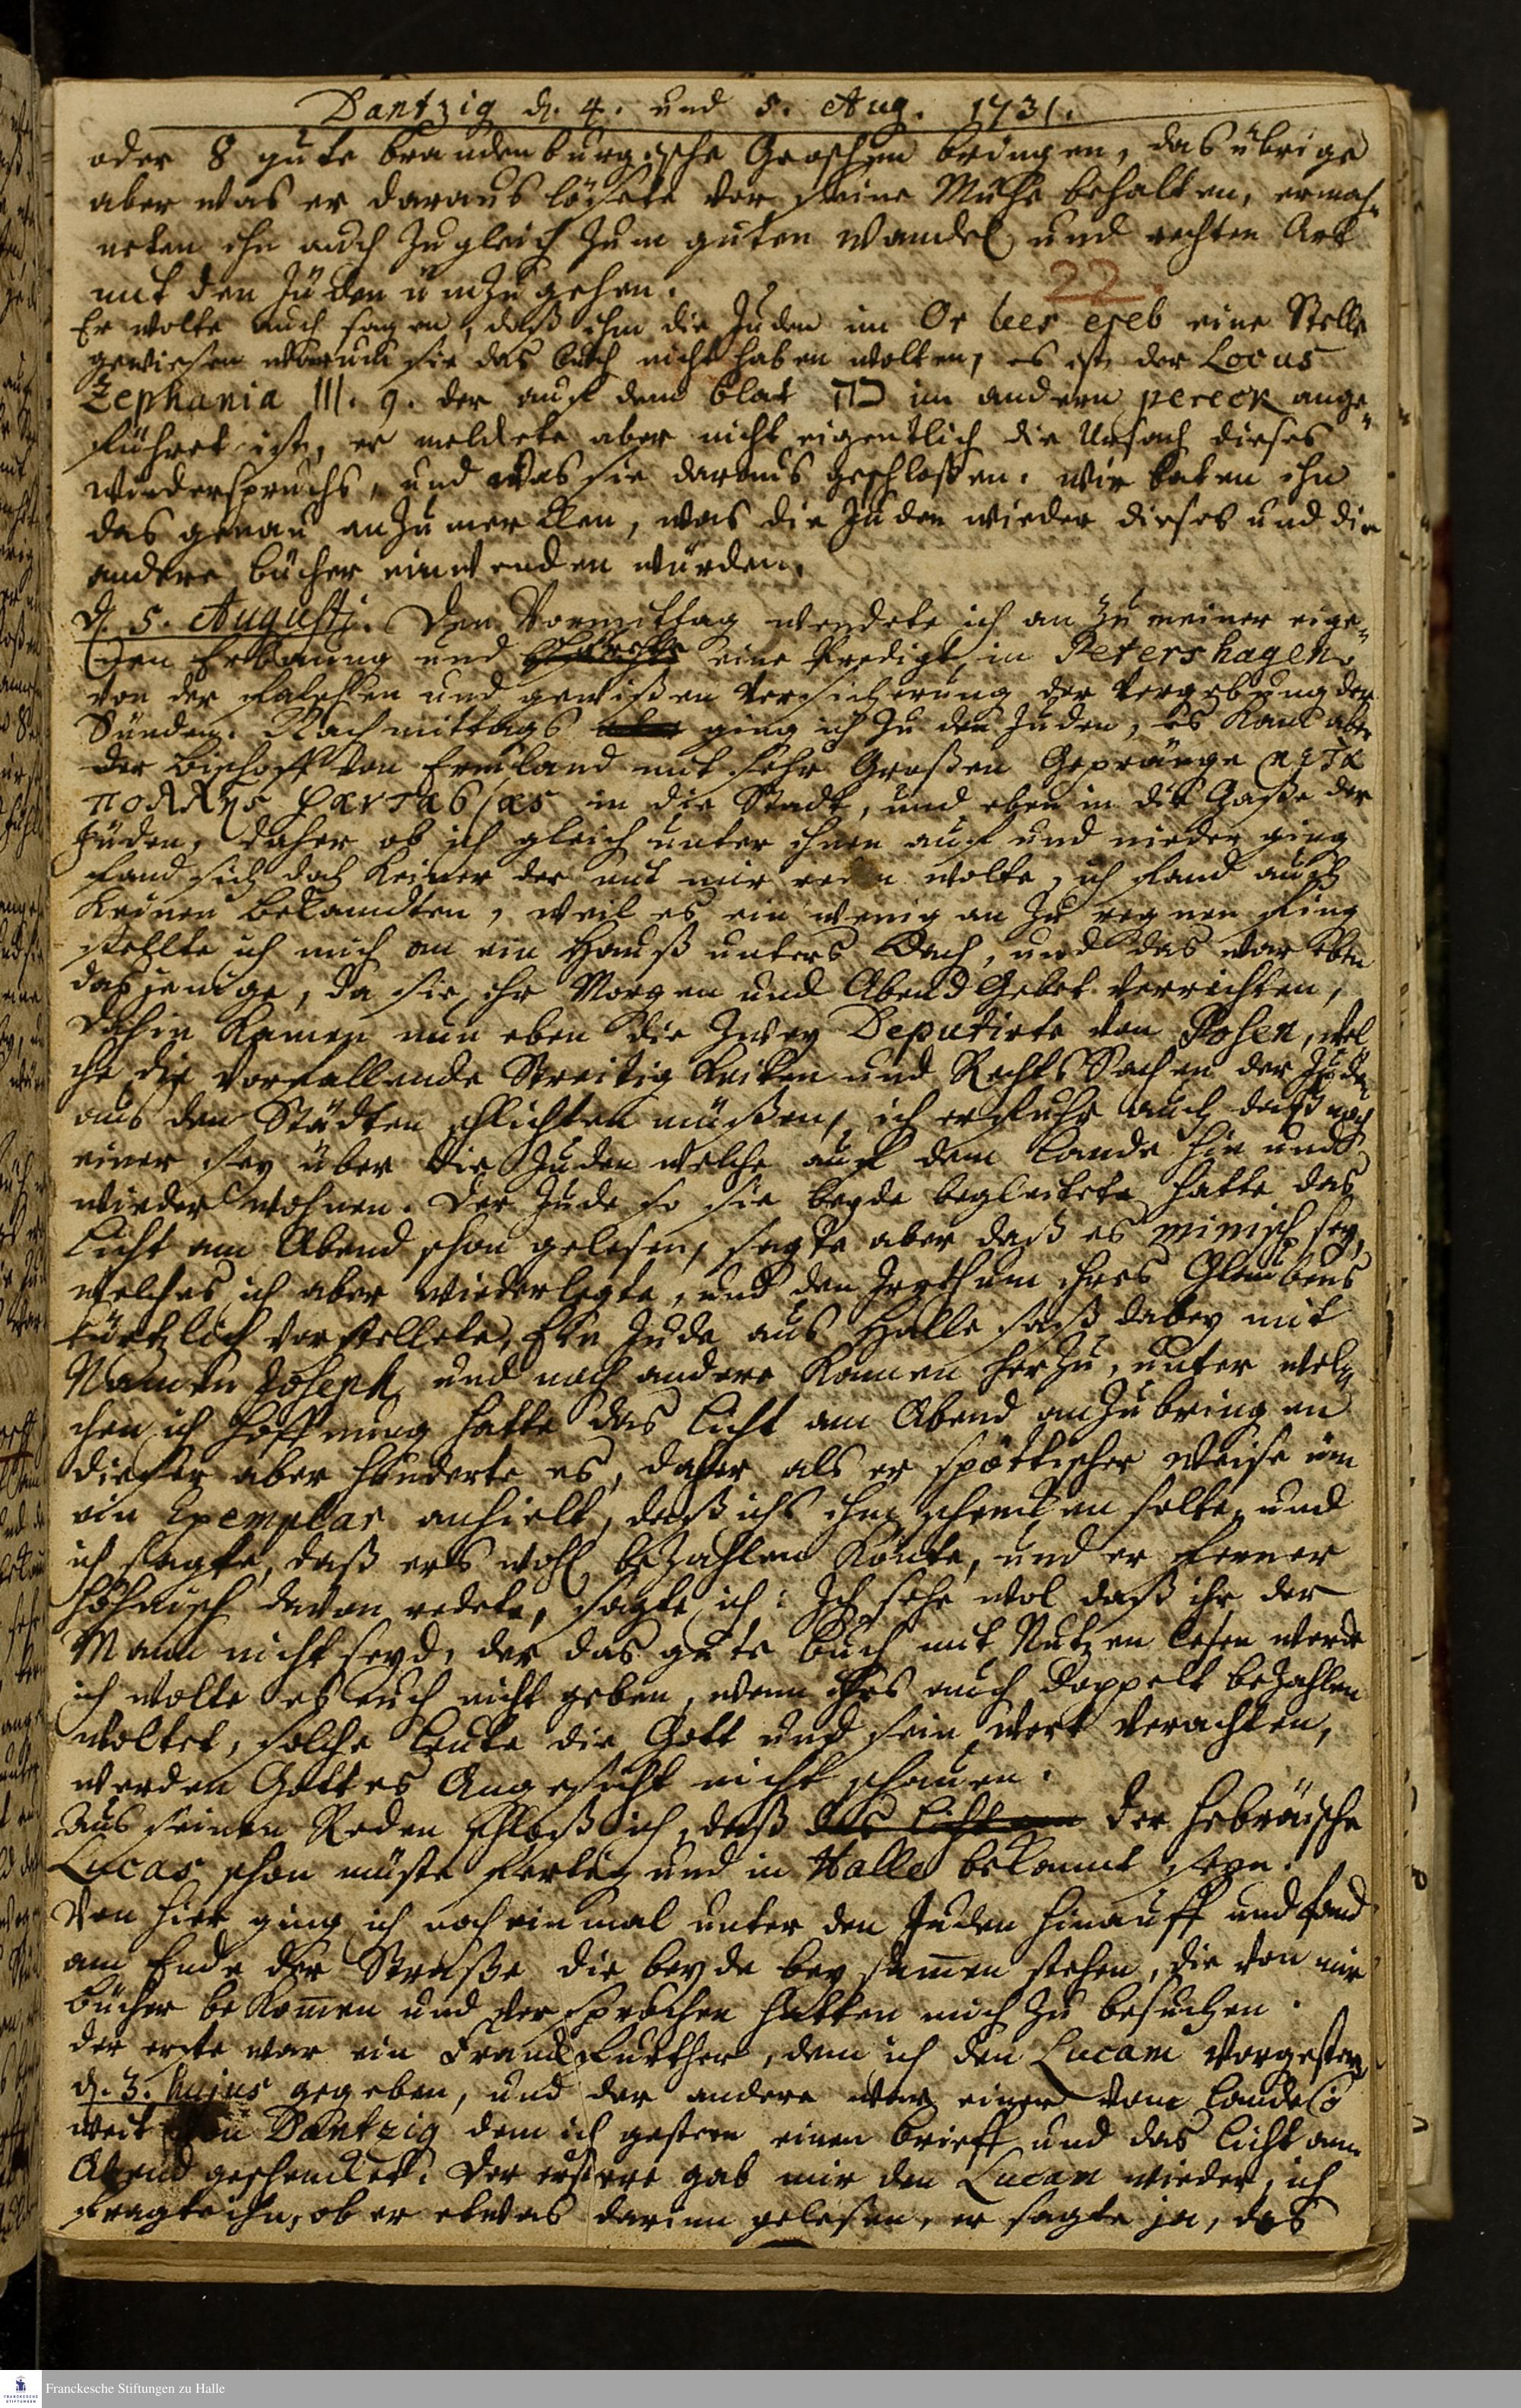 Dantzig d. 4. und 5. Aug. 1731.
oder 8 gute brandenburgische Groschen bringen, das übrige
aber was er daraus lösete vor seine Mühe behalten, ermah-
neten ihn auch zugleich zum guten Wandel und rechten Art
mit den Juden umzugehen.
22.
Er wolte auch sagen, daß ihm die Juden im Or leer ereb eine Stelle
gewiesen warum sie das buch nicht haben wolten, es ist der Locus
Zephania III. 9. der auf dem blat im andern pereck ange-
führet ist, er meldete aber nicht eigentlich die Ursach dieses
wiederspruchs, und was sie daraus geschlossen. wir baten ihn
das genau anzumercken, was die Juden wieder dieses und die
andere bücher einwenden würden.
d. 5. Augusti. Den Vormittag wendete ich an zu meiner eige-
nen Erbauung und eine Predigt, in Petershagen
von der falschen und gewißen Versicherung der Vergebung der
Sünden. Nachmittags ging ich zu den Juden, es kam aber
der Bischoff von Ermland mit sehr Großen Gepränge μετα
πολλης φαντασιας in die Stadt, und eben in die Gaße der
Juden, daher ob ich gleich unter ihnen auf und nieder ging
fand sich doch keiner der mit mir reden wolte, ich fand auch
keinen bekandten, weil es ein wenig an zu regnen fing
stellte ich mich an ein Hauß unters Dach, und das war eben
dasjenige, da sie ihr Morgen und Abend Gebet verrichten,
dahin kamen nun eben die zwey Deputirte von Posen, wel
che die vorfallende Streitigkeiten und Rechts Sachen der Juden
aus den Städten schlichten müßen, ich erfuhr auch daß noch
einer sey über die Juden welche auf dem Lande hin und
wieder wohnen. Der Jude so sie beyde begleitete hatte das
Licht am Abend schon gelesen, sagte aber daß es minisch sey,
welches ich aber wiederlegte, und den Irrthum ihres Glaubens
kürtzlich vorstellete, Ein Jude aus Halle saß dabey mit
Namen Joseph, und noch andere kamen herzu, unter wel-
chen ich hoffnung hatte das Licht am Abend anzubringen
dieser aber hinderte es, daher als er spöttischer Weise üm
ein Exemplar anhielt, daß ichs ihm schencken solte, und
ich sagte, daß ers wohl bezahlen könte, und er ferner
höhnisch davon redete, sagte ich: Ich sehe wol daß ihr der
Mann nicht seyd, der das gute buch mit Nutzen lesen werde
ich wolte es euch nicht geben, wenn ihrs auch doppelt bezahlen
woltet, solche Leute die Gott und sein wort verachten,
werden Gottes Angesicht nicht schauen.
Aus seinen Reden schloß ich, daß das Licht am der hebräische
Lucas schon müste fertig und in Halle bekannt seyn.
Von hier ging ich noch einmal unter den Juden hinauff und fand
am Ende der Straße die beyde beysammen stehen, die von mir
bücher bekommen und versprochen hatten mich zu besuchen.
der erste war ein Franckfurther, dem ich den Lucam vorgestern
d. 3. hujus gegeben, und der andere war einer vom Lande
weit von Dantzig dem ich gestern einen brieff und das Licht am
Abend geschencket. Der erstere gab mir den Lucam wieder, ich
fragte ihn, ob er etwas darinn gelesen, er sagte ja, das
Franckesche Stiftungen zu Halle